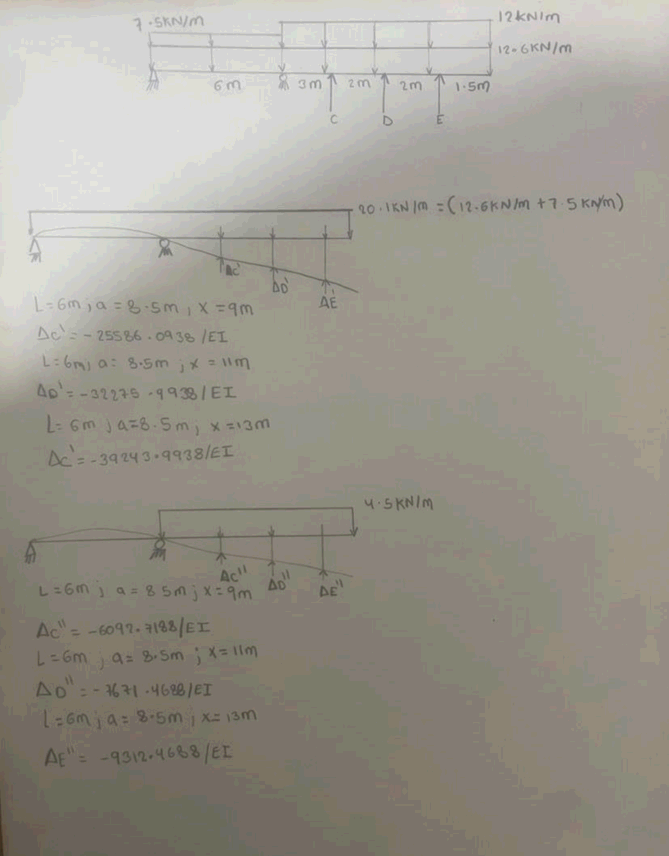 7.5KN/m
12KN/m
12.6KN/m
6m 3m 2m 2m 1.5m
C D E
20.1KN/m = (12.6KN/m + 7.5KN/m)
ΔC' ΔD' ΔE'
L=6m, a=8.5m, x=9m
ΔC' = -25586.0938/EI
L=6m, a=8.5m; x=11m
ΔD' = -32275.9938/EI
L=6m; a=8.5m; x=13m
ΔC' = -39243.9938/EI
4.5KN/m
ΔC'' ΔD'' ΔE''
L=6m; a=8.5m; x=9m
ΔC'' = -6092.7188/EI
L=6m; a=8.5m; x=11m
ΔD'' = -7671.4688/EI
L=6m; a=8.5m; x=13m
ΔE'' = -9312.4688/EI